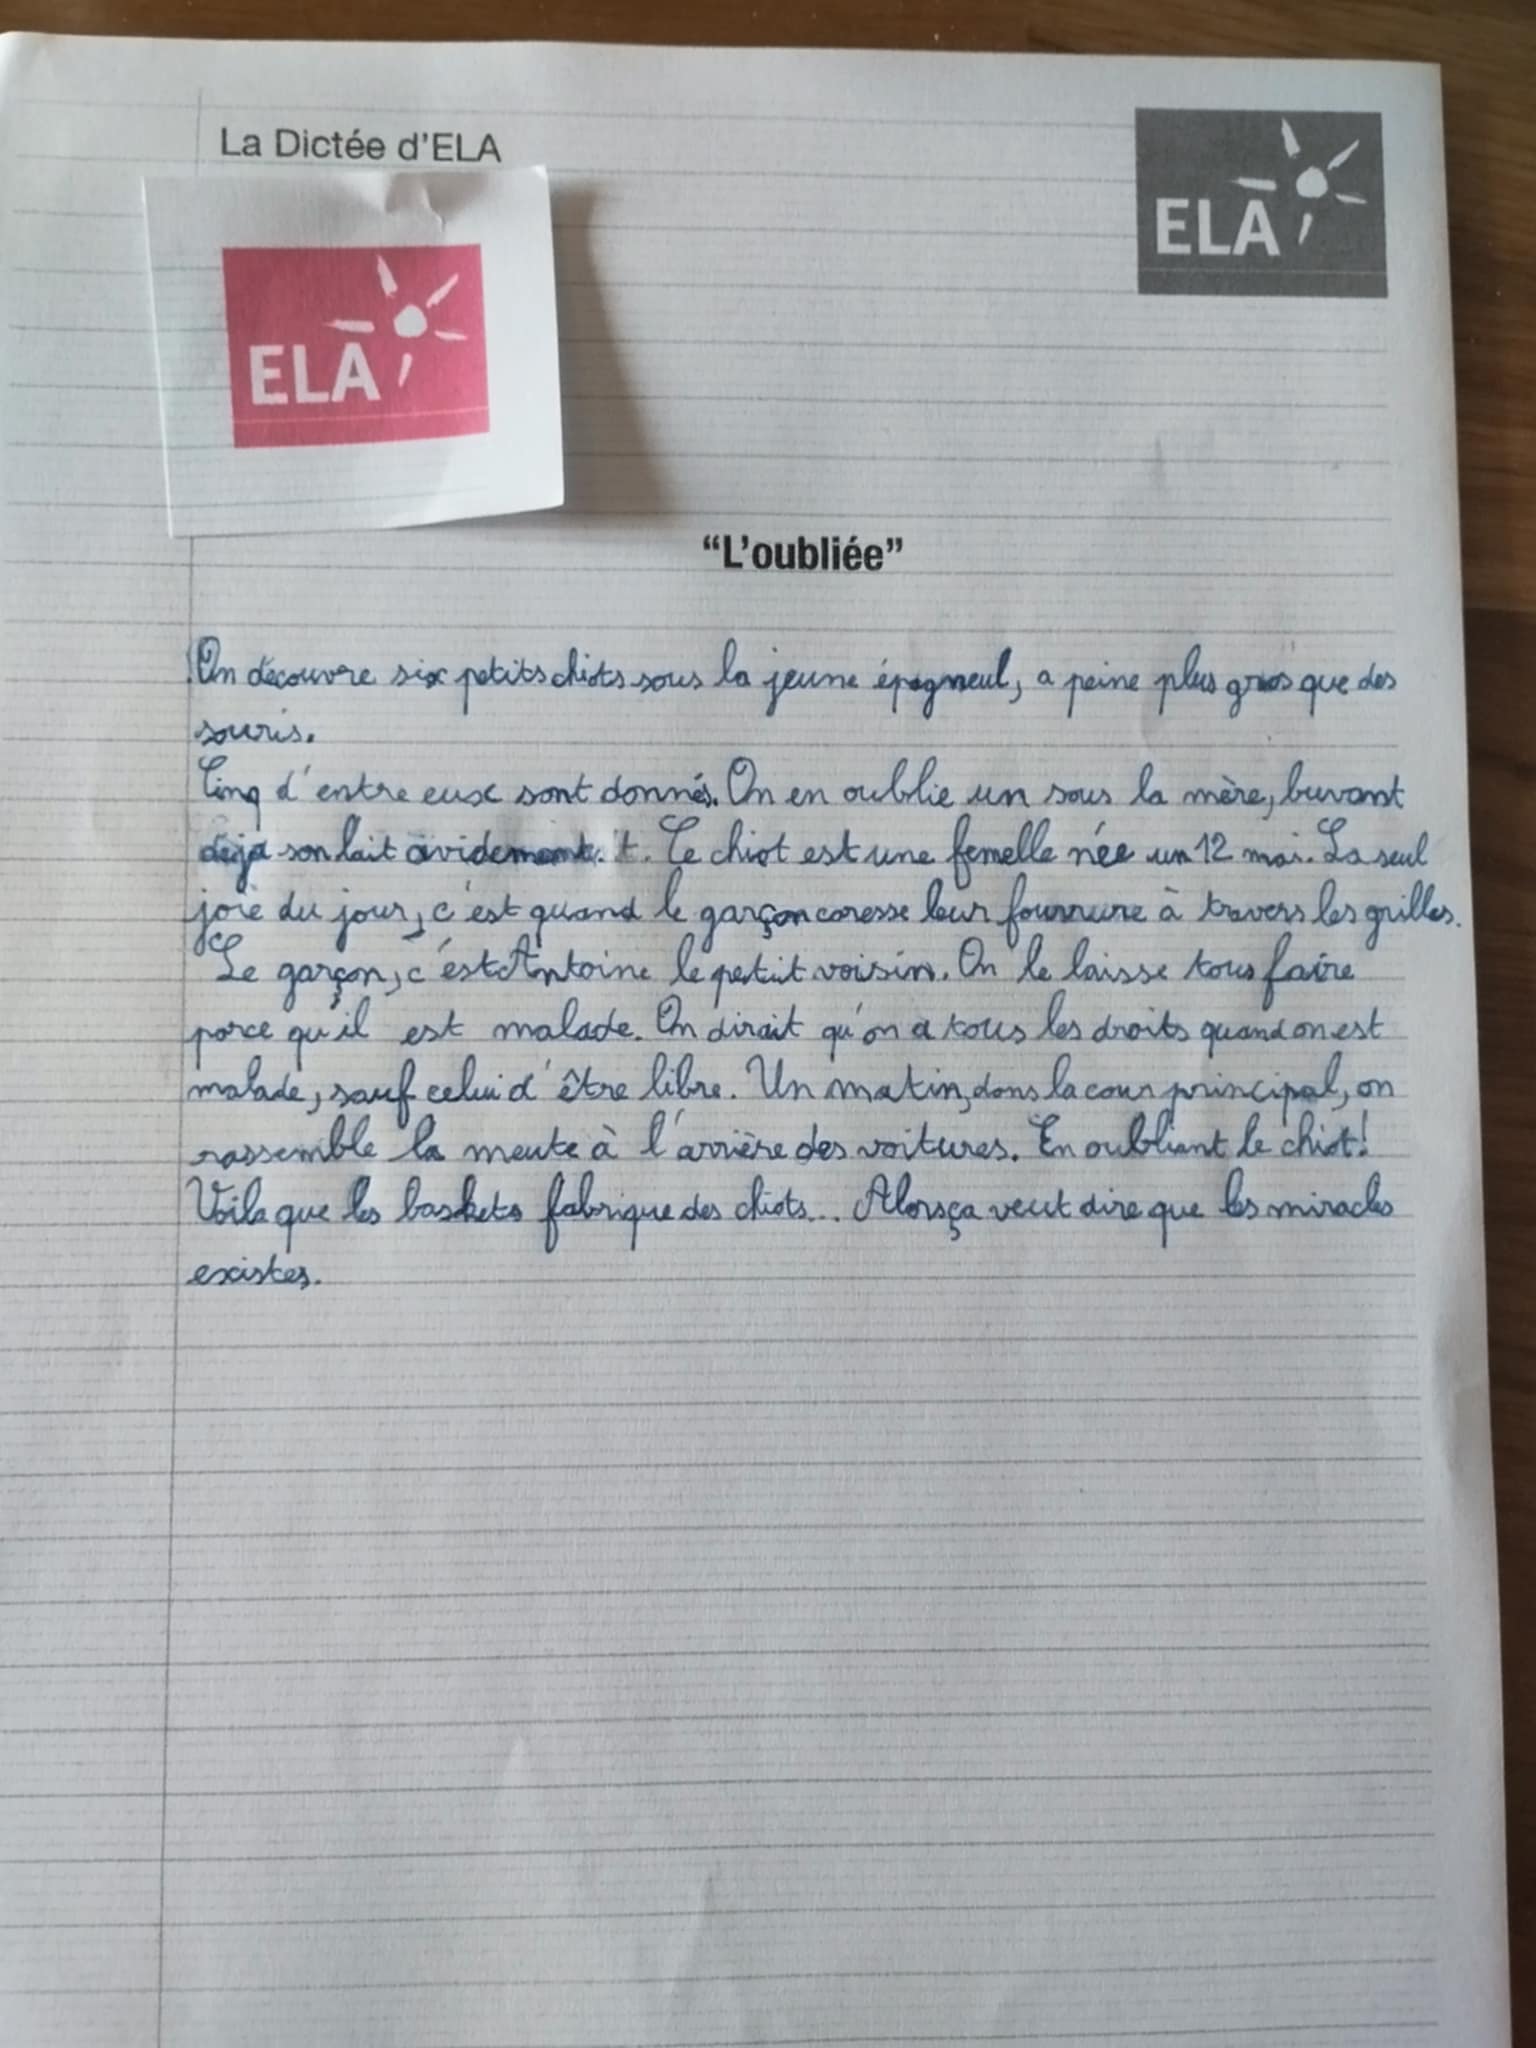 La Dictée d'ELA
ELA
ELA
"L'oubliée"
On découvre six petits chiots sous la jeune épagneul, a peine plus gros que des
souris.
Cinq d'entre eux sont donnés. On en oublie un sous la mère, buvant
déja son lait avidement. t. Ce chiot est une femelle née un 12 mai. La seul
joie du jour, c'est quand le garçon caresse leur fourrure à travers les grilles.
Le garçon, c'est Antoine le petit voisin. On le laisse tous faire
parce qu'il est malade. On dirait qu'on a tous les droits quand on est
malade, sauf celui d'être libre. Un matin, dans la cour principal, on
rassemble la meute à l'arrière des voitures. En oubliant le chiot!
Voila que les baskets fabrique des chiots... Alors ça veut dire que les miracles
existes.